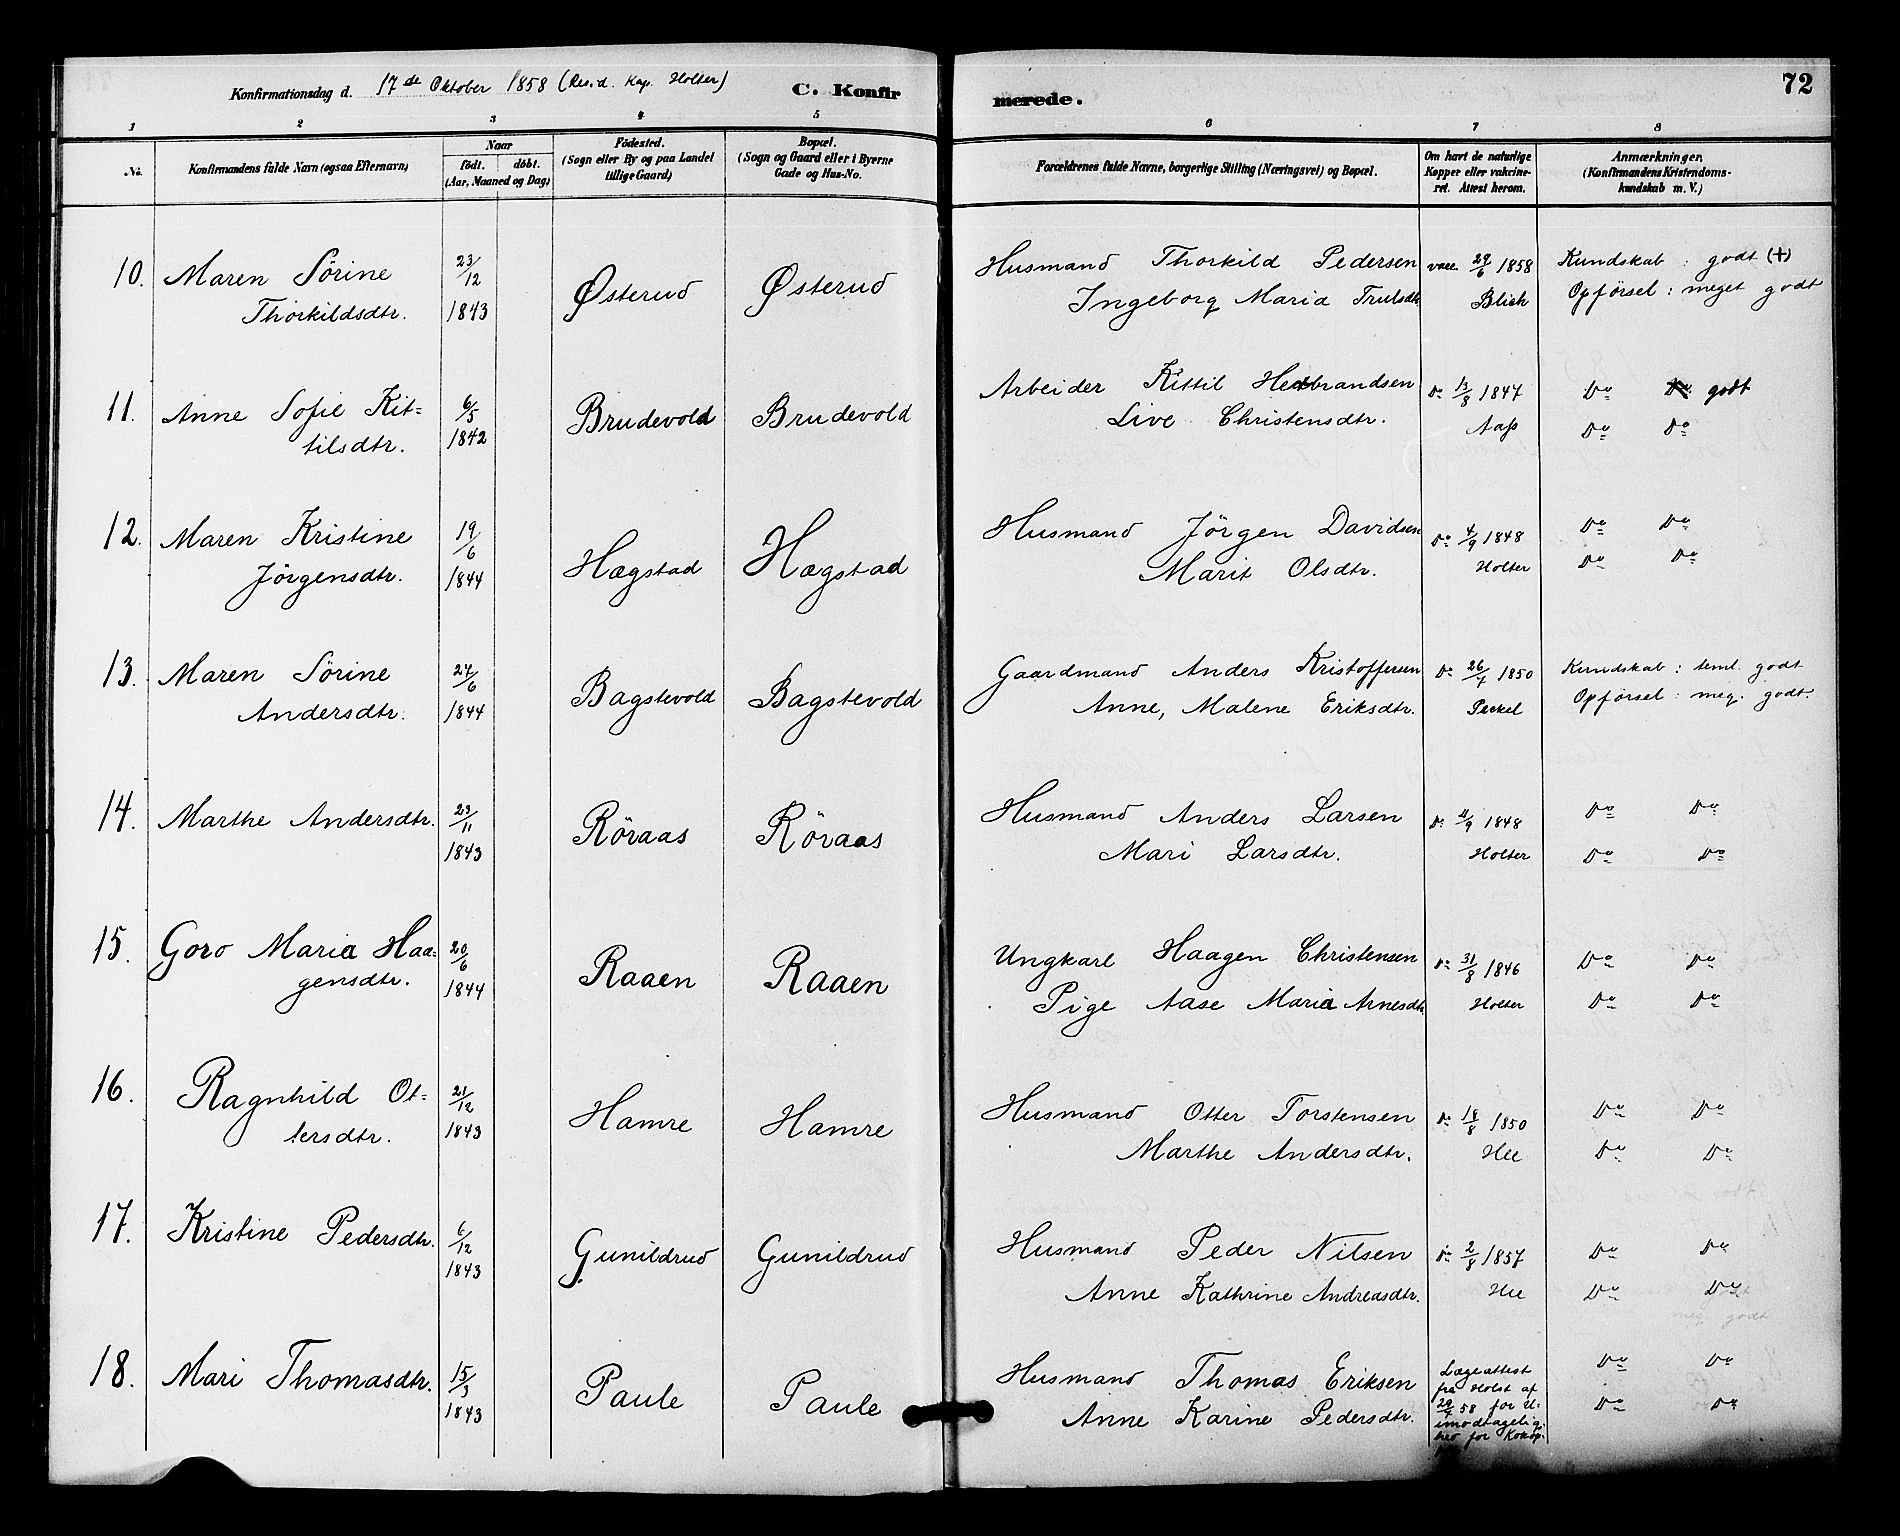 72
Konfirmationsdag d. 17de Oktober 1858 (Resid. Kap. Holter) C. Konfirmerede.
1 2 3 4 5 6 7 8
No. Konfirmandens fulde Navn (ogsaa Efternavn) Naar födt. döbt. (Aar, Maaned og Dag) Födested. (Sogn eller By og paa Landet tillige Gaard) Bopæl. (Sogn og Gaard eller i Byerne Gade og Hus-No. Forældrenes fulde Navne, borgerlige Stilling (Næringsvei) og Bopæl. Om havt de naturlige Kopper eller vakcineret. Attest herom. Anmærkninger. (Konfirmandens Kristendomskundskab m. V.)
10. Maren Sörine 23/12 Østerud Østerud Husmand Thorkild Pedersen vacc 29/6 1858 Kundskab : godt (+)
Thorkildsdtr. 1843 Ingeborg Maria Trulsdtr Blich Opförsel : meget godt
11. Anne Sofie Kit= 6/5 Brudevold Brudevold Arbeider Kittil Hedbrandsen Do 13/8 1847 Do godt
tilsdtr. 1842 Live Christensdtr. Aass Do Do
12. Maren Kristine 19/6 Hægstad Hægstad Husmand Jörgen Davidsen Do 4/9 1848 Do Do
Jörgensdtr. 1844 Marit Olsdtr. Holter Do Do
13. Maren Sörine 27/6 Bagstevold Bagstevold Gaardmand Anders Kristoffersen Do 26/7 1850 Kundskab : teml. godt
Andersdtr. 1844 Anne, Malene Eriksdtr. Peckel Opförsel : meg. godt.
14. Marthe Andersdtr. 23/11 Röraas Röraas Husmand Anders Larsen Do 11/9 1848 Do Do
1843 Mari Larsdtr. Holter Do Do
15. Goro Maria Haa= 20/6 Raaen Raaen Ungkarl Haagen Christensen Do 31/8 1846 Do Do
gensdtr. 1844 Pige Aase Maria Arnesdtr Holter Do Do
16. Ragnhild Ot= 21/12 Hamre Hamre Husmand Otter Torstensen Do 18/8 1850 Do Do
tersdtr. 1843 Marthe Andersdtr. Hee Do Do
17. Kristine Pedersdtr. 6/12 Gunildrud Gunildrud Husmand Peder Nilsen Do 2/8 1857 Do Do
1843 Anne Kathrine Andreasdtr. Hee Do Do
18. Mari Thomasdtr. 15/3 Paule Paule Husmand Thomas Eriksen Lægeattest Do Do
1843 Anne Karine Pedersdtr. fra Holst af Do Do
58 for U-
imodtagelig-
hed for Kokop-